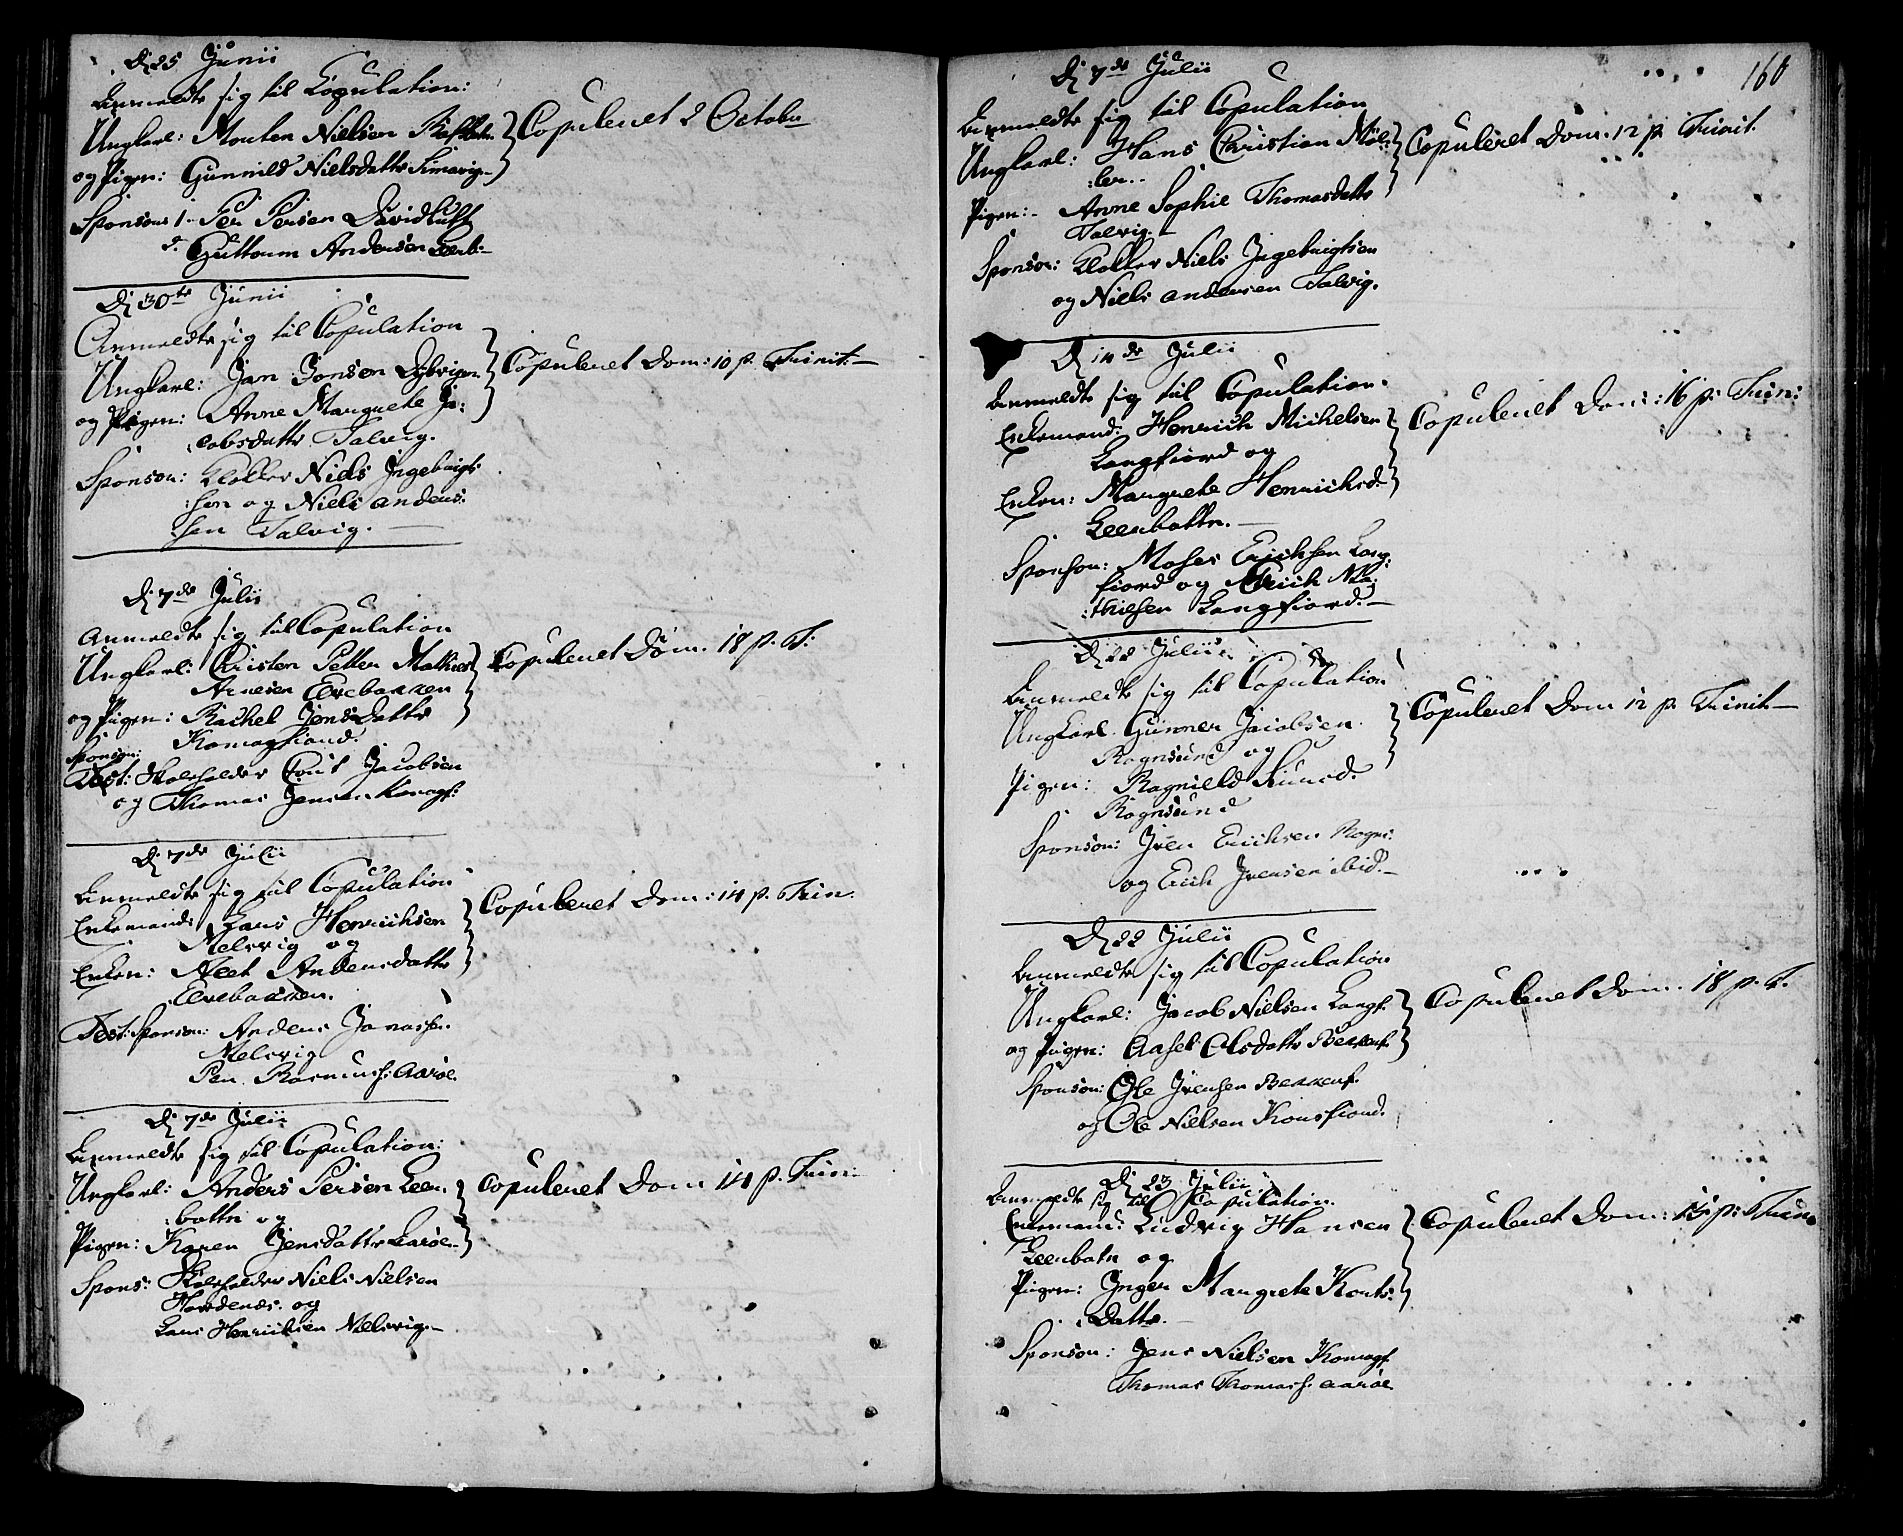 Dj 25 Junii
Anmeldte sig til Copulation:
Ungkarl: Morten Nielsen
og Pigen: Gunnild Nielsdatter Simavig
Sponsor: 1. Per Persen Davidluft
2. Guttorm Andersen Leerb:
Copuleret 2 October
Dj 30te Junii
Anmeldte sig til Copulation
Ungkarl: Jan Jonsen
og Pigen: Anne Margrete Ja:
:cobsdatter Talvig.
Sponsor: Klokker Niels Ingebrigt:
:sen og Niels Anders:
:sen Talvig.
Copuleret Dom: 10 p. Trinit:
Dj 7de Julii
Anmeldte sig til Copulation
Ungkarl: Cristen Petter Mathias
Arnesen Elvebakken
og Pigen: Rachel Jensdatter
Komagfiord.
Sponsor:
Test: Skoleholder Cort Jacobsen
og Thomas Jensen Komagf:
Copuleret Dom. 18 p. T:
Dj 7de Julii
Anmeldte sig til Copulation
Enkemand: Lars Henrichsen
Melsvig og
Enken: Neet Andersdatter
Elvebakken.
Test: Sponsor: Anders Jonassen
Melsvig
Per Rasmuss: Aarøe
Copuleret Dom: 14 p. Trin.
Dj 7de Julii
Anmeldte sig til Copulation:
Ungkarl: Anders Persen Leer:
:botten og
Pigen: Karen Jensdatter Aarøe
Spons: Skoleholder Niels Nielsen
og
Lars Henrichsen Melsvig
Copuleret Dom 14 p. Trin:
160
Dj 7de Julii
Anmeldte sig til Copulation
Ungkarl: Hans Christian Møl:
:ler.
Pigen: Anne Sophie Thomasdatter
Talvig.
Sponsor: Klokker Niels Ingebrigtsen
og Niels Andersen Talvig.
Copuleret Dom. 12 p. Trinit.
Dj 14de Julii
Anmeldte sig til Copulation.
Enkemand: Henrich Michelsen
Langfiord og
Enken: Margrete Henrichsd.
Leerbotten.
Sponsor: Moses Erichsen Lang:
fiord og Erich Ma:
:thiesen Langfiord.
Copuleret Dom: 16 p: Trin:
Dj 22 Julii
Anmeldte sig til Copulation
Ungkarl Gunner Jacobsen
Rognsund og
Pigen: Ragnield
Rognsund
Sponsor: Iver Erichsen Rogns:
og Erich Iversen ibid.
Copuleret Dom 12 p. Trinit
Dj 22 Julii
Anmeldte sig til Copulation
Ungkarl: Jacob Nielsen Langf.
og Pigen: Aasel Olsdatter Bekkarf.
Sponsor: Ole Iversen Bekkarf.
og Ole Nielsen Korsfiord.
Copuleret Dom. 18 p. T.
Dj 23 Julii
Anmeldte sig til Copulation.
Enkemand: Ludvig Hansen
Leerbotn og
Pigen: Inger Margrete Korts:
:Datter.
Sponsor: Jens Nielsen Komagf.
Thomas Thomass: Aarøe
Copuleret Dom: 15 p: Trin: